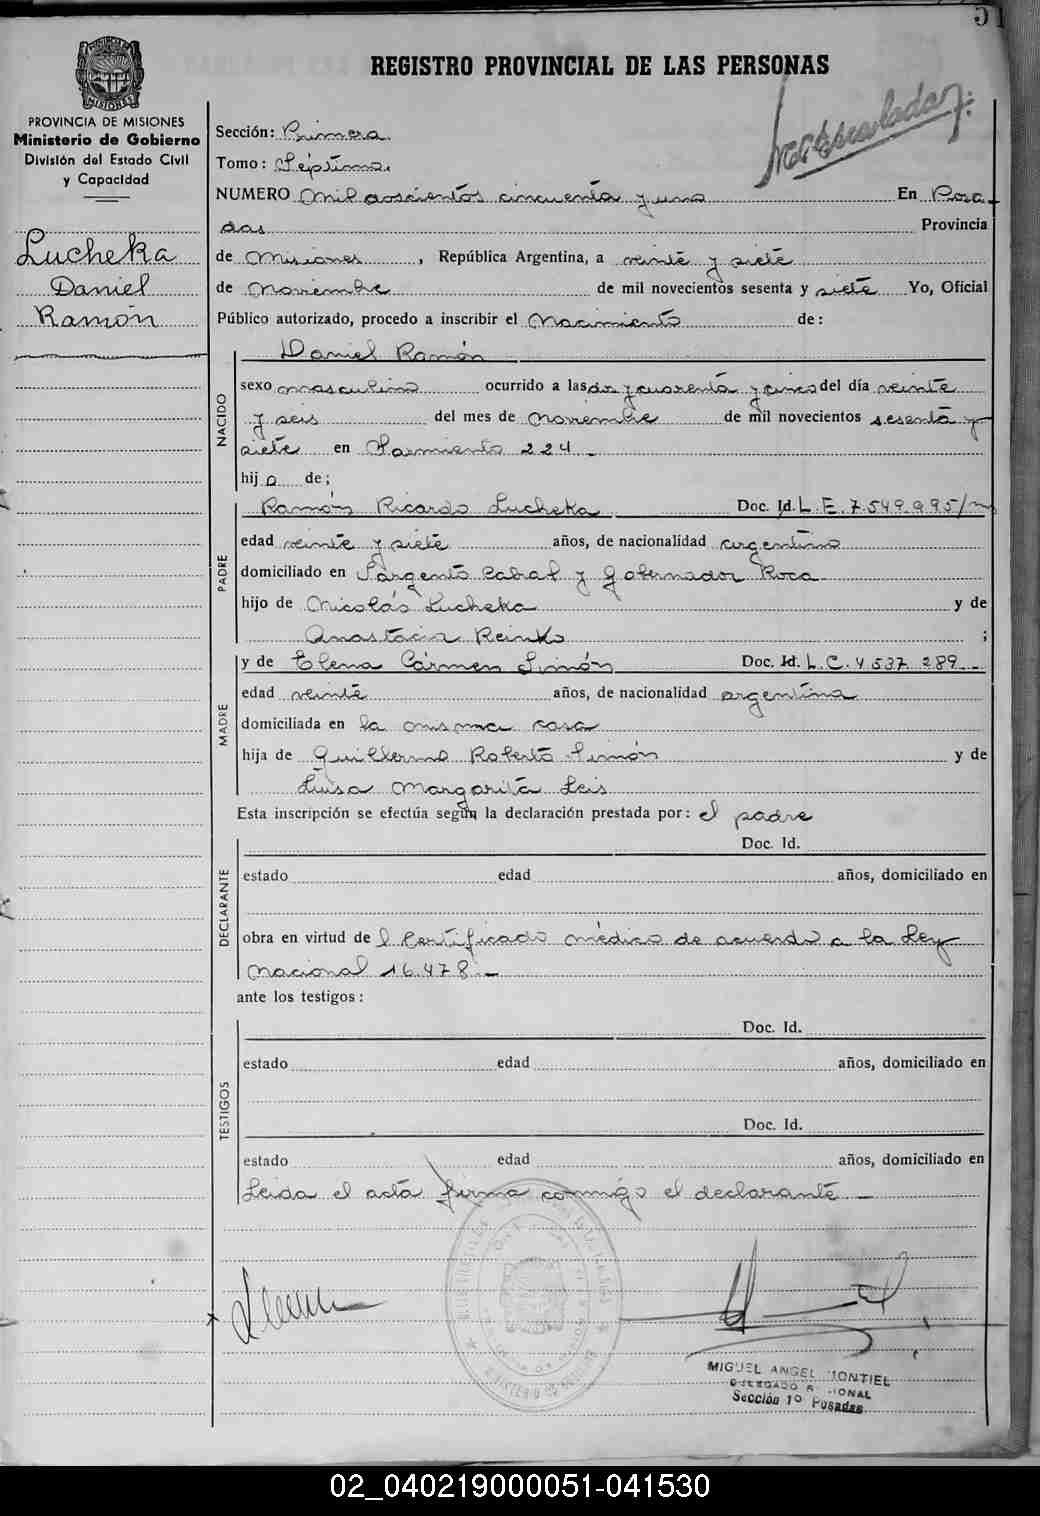 51
REGISTRO PROVINCIAL DE LAS PERSONAS
PROVINCIA DE MISIONES
Ministerio de Gobierno
División del Estado Civil
y Capacidad
Lucheka
Daniel
Ramón
Sección: Primera
Tomo: Séptimo.
NUMERO mil doscientos cincuenta y uno En Posa-
das Provincia
de Misiones, República Argentina, a veinte y siete
de Noviembre de mil novecientos sesenta y siete Yo, Oficial
Público autorizado, procedo a inscribir el Nacimiento de:
NACIDO
Daniel Ramón
sexo masculino ocurrido a las dos y cuarenta y cinco del día veinte
y seis del mes de noviembre de mil novecientos sesenta y
siete en Sarmiento 224 -
hijo de;
PADRE
Ramón Ricardo Lucheka Doc. Id. L.E. 7.549.995/
edad veinte y siete años, de nacionalidad argentino
domiciliado en Sargento Cabral y Gobernador Roca
hijo de Nicolás Lucheka y de
Anastacia Reinko ;
MADRE
y de Elena Cármen Simón Doc. Id. L.C. 4.537.289 -
edad veinte años, de nacionalidad argentina
domiciliada en la misma casa
hija de Guillermo Roberto Simón y de
Luisa Margarita Leis
Esta inscripción se efectúa según la declaración prestada por: el padre
DECLARANTE
Doc. Id.
estado edad años, domiciliado en
obra en virtud del Certificado médico de acuerdo a la Ley
Nacional 16.478. -
ante los testigos:
TESTIGOS
Doc. Id.
estado edad años, domiciliado en
Doc. Id.
estado edad años, domiciliado en
Leida el acta firma conmigo el declarante -
MIGUEL ANGEL MONTIEL
DELEGADO REGIONAL
Sección 1º Posadas
02_040219000051-041530